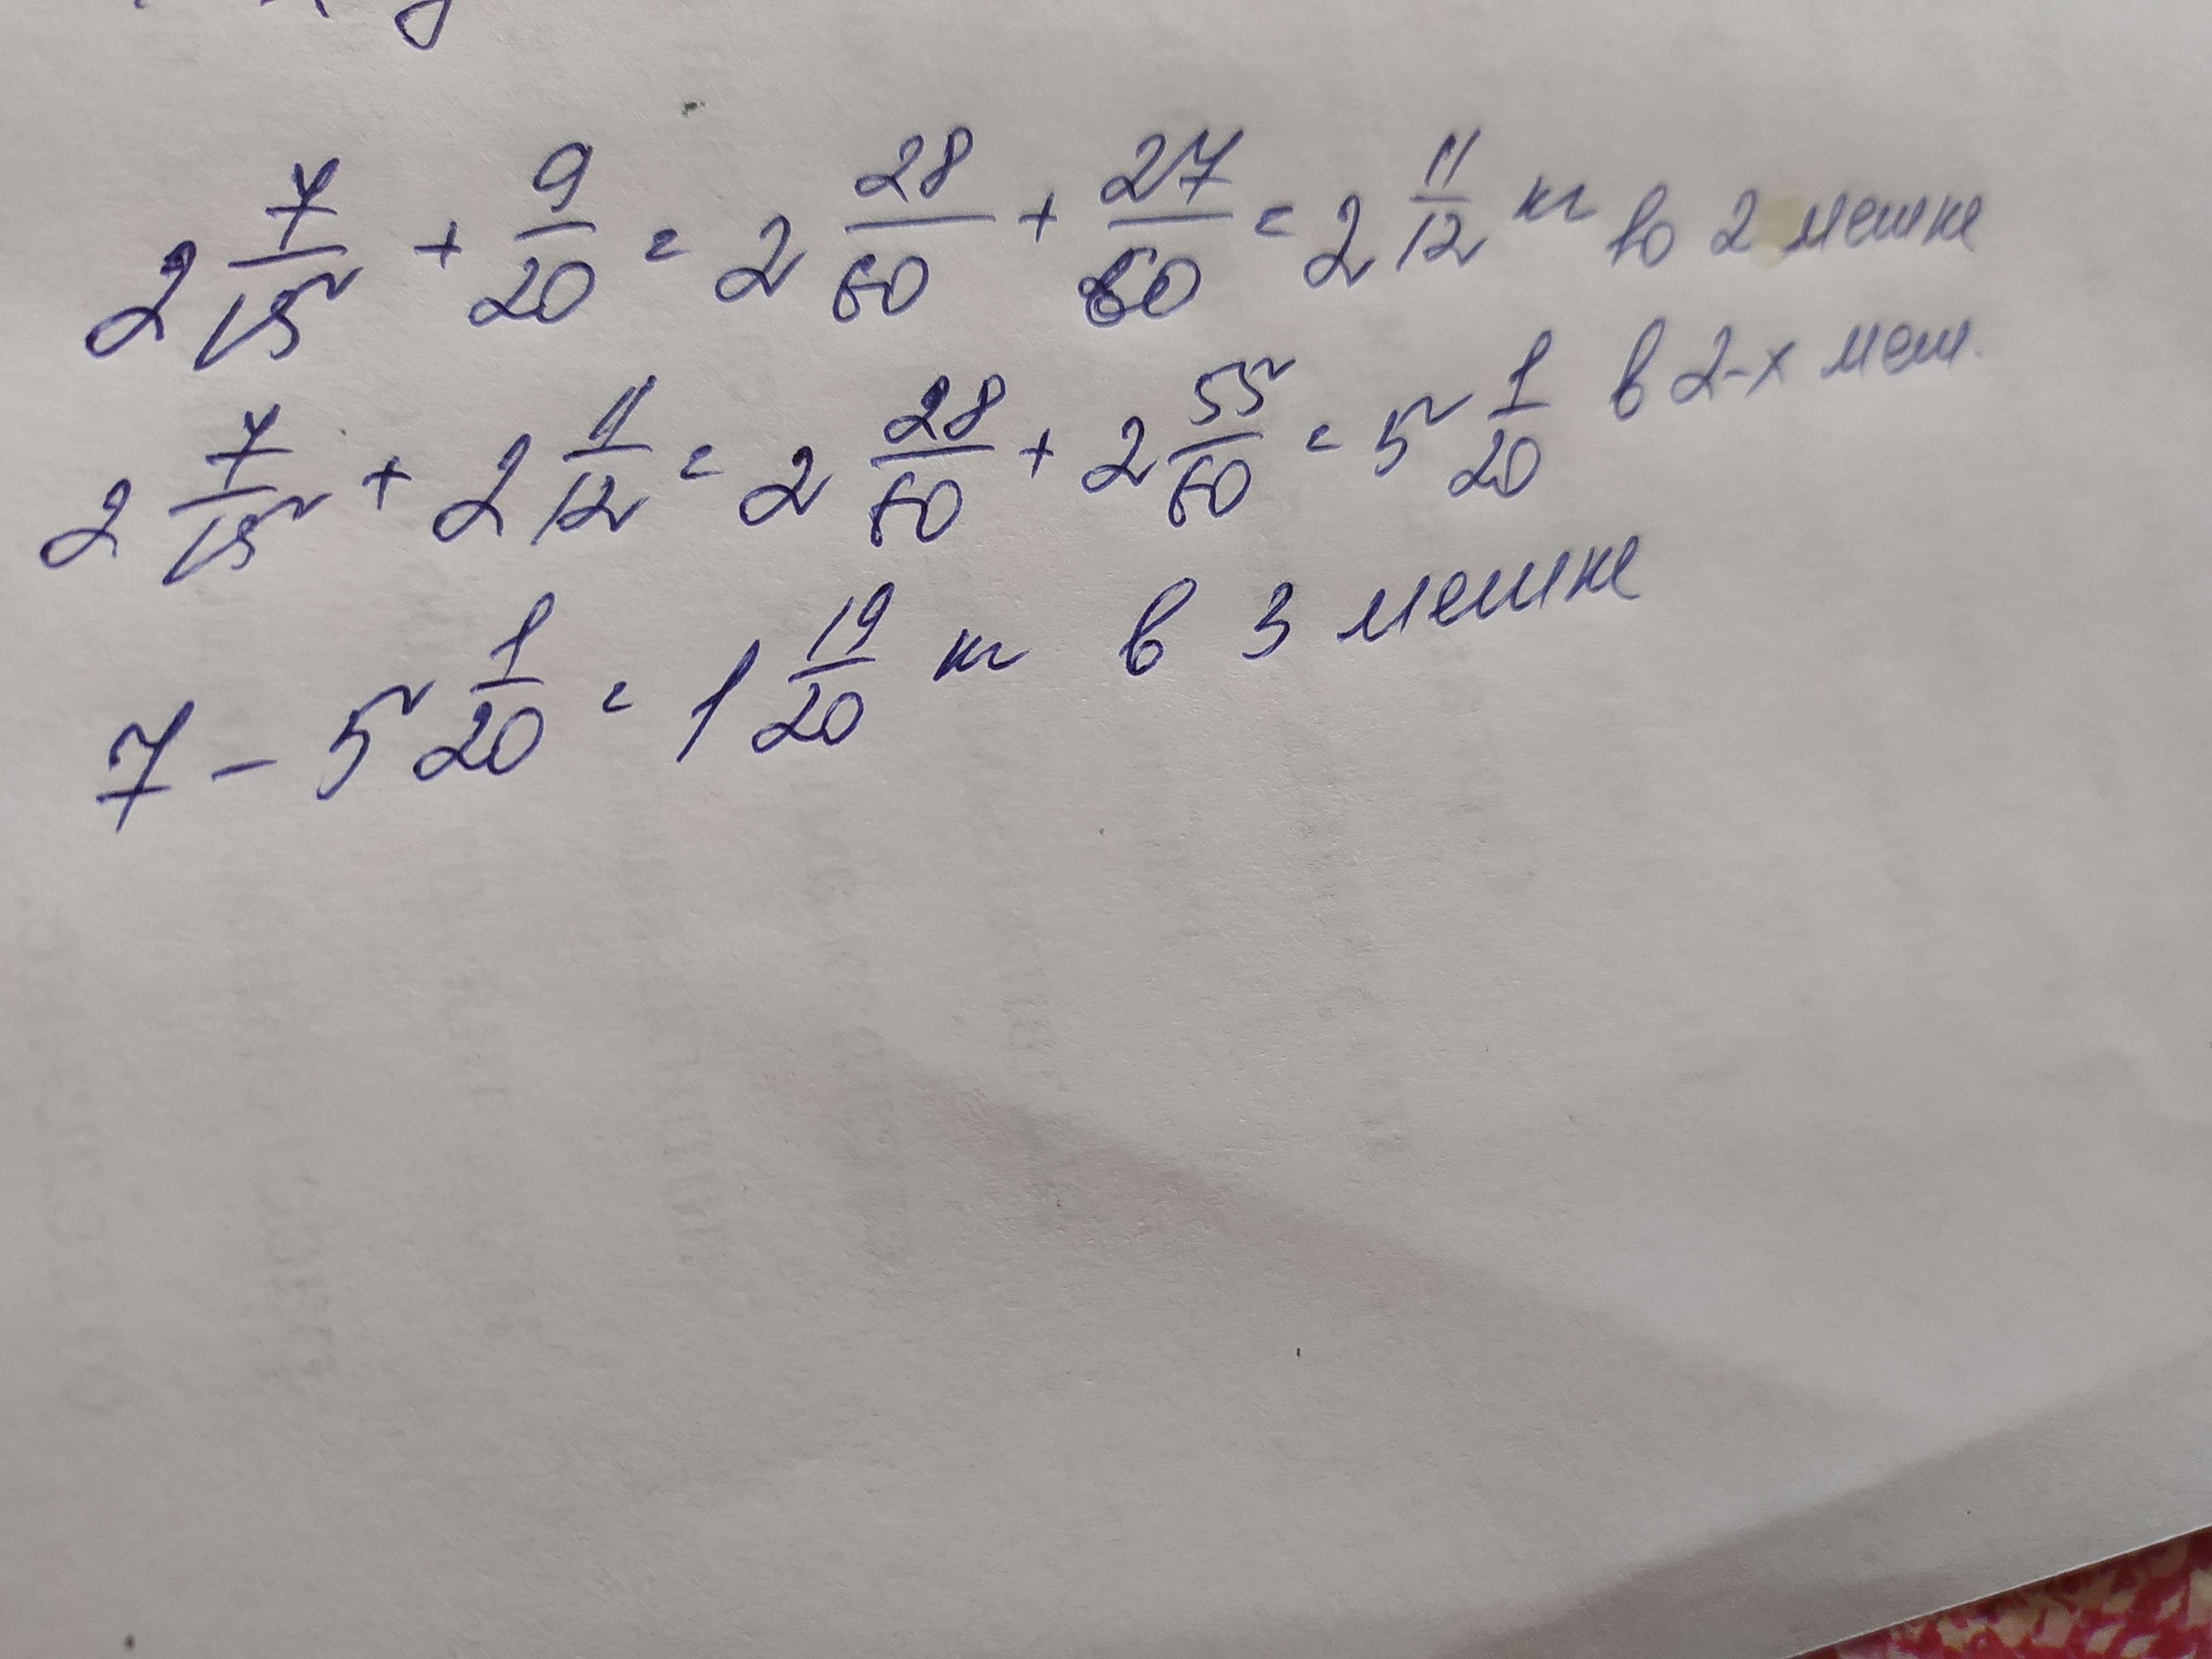 2 7/15 + 9/20 = 2 28/60 + 27/60 = 2 11/12 кг во 2 мешке
2 7/15 + 2 11/12 = 2 28/60 + 2 55/60 = 5 1/20 в 2-х меш.
7 - 5 1/20 = 1 19/20 кг в 3 мешке